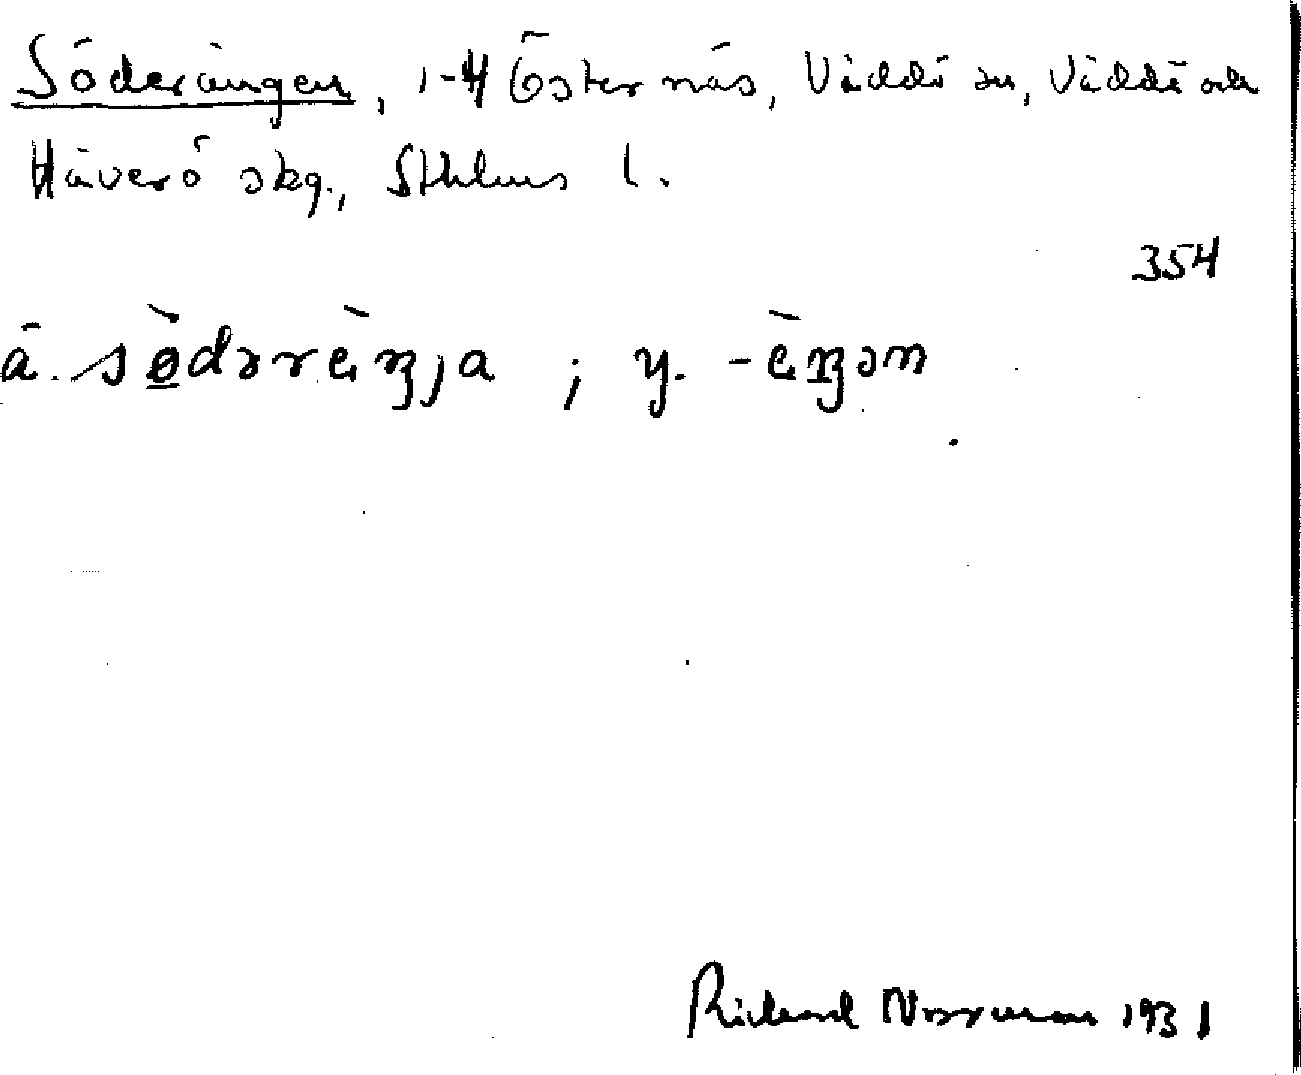 Söderängen, 1-4 Östernäs, Väddö sn, Väddö och
Häverö skg., Sthlms l.
354
ä. sø̀dərèŋja ; y. -èŋən
Rickard Norrman 1931